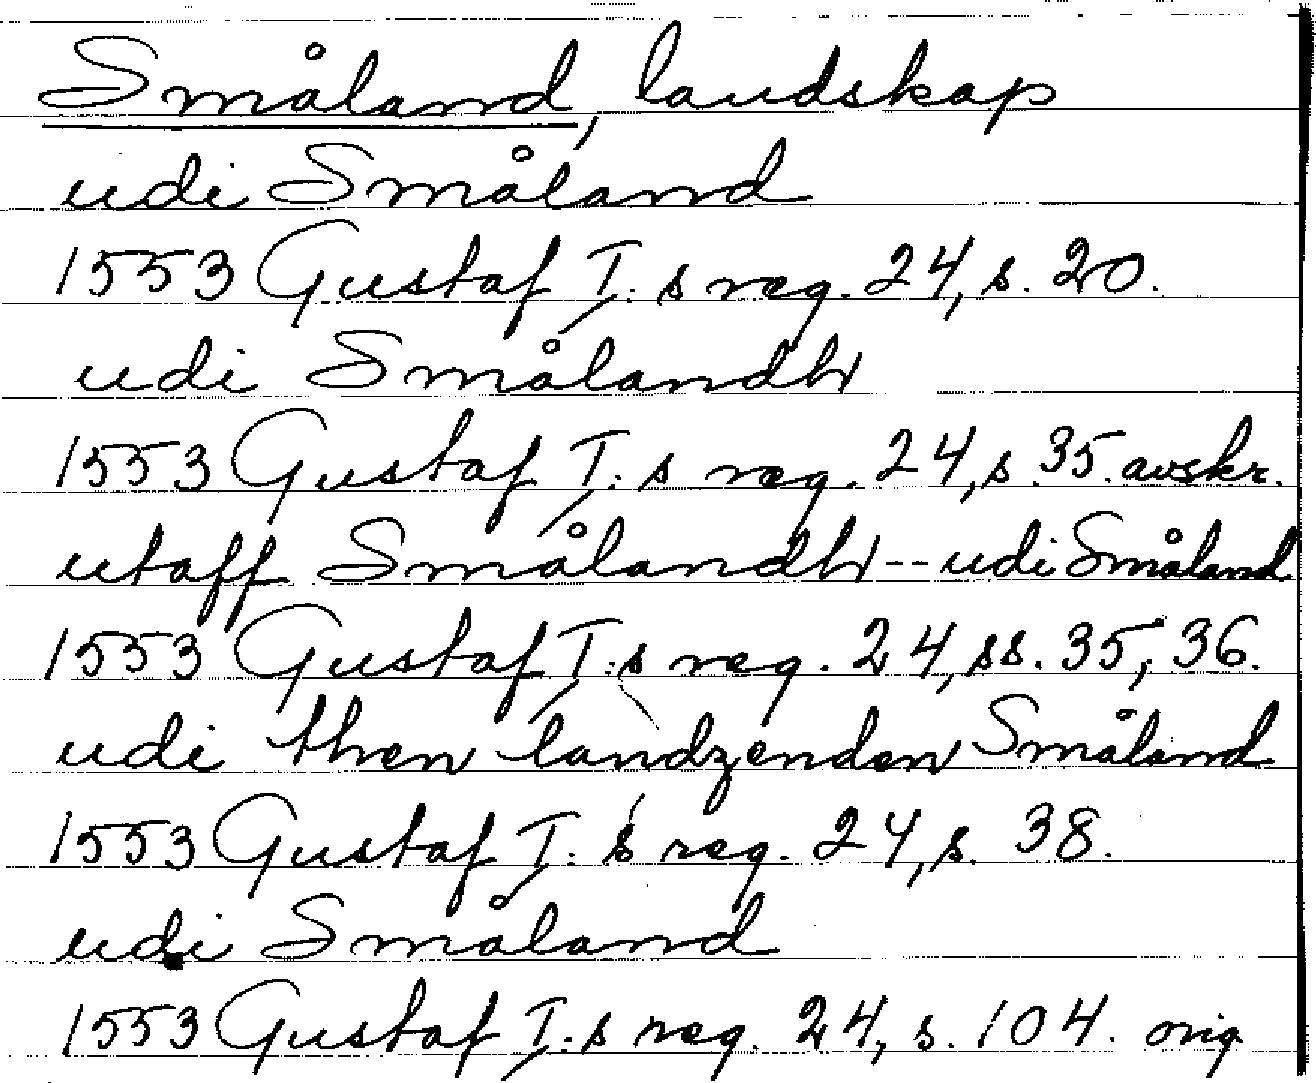 Småland, landskap
udi Småland
1553 Gustaf I:s reg. 24, s. 20.
udi Smålandh
1553 Gustaf I:s reg. 24, s. 35. avskr.
utaff Smålandh -- udi Småland
1553 Gustaf I:s reg. 24, ss. 35, 36.
udi then landzenden Småland
1553 Gustaf I:s reg. 24, s. 38.
udi Småland
1553 Gustaf I:s reg. 24, s. 104. orig